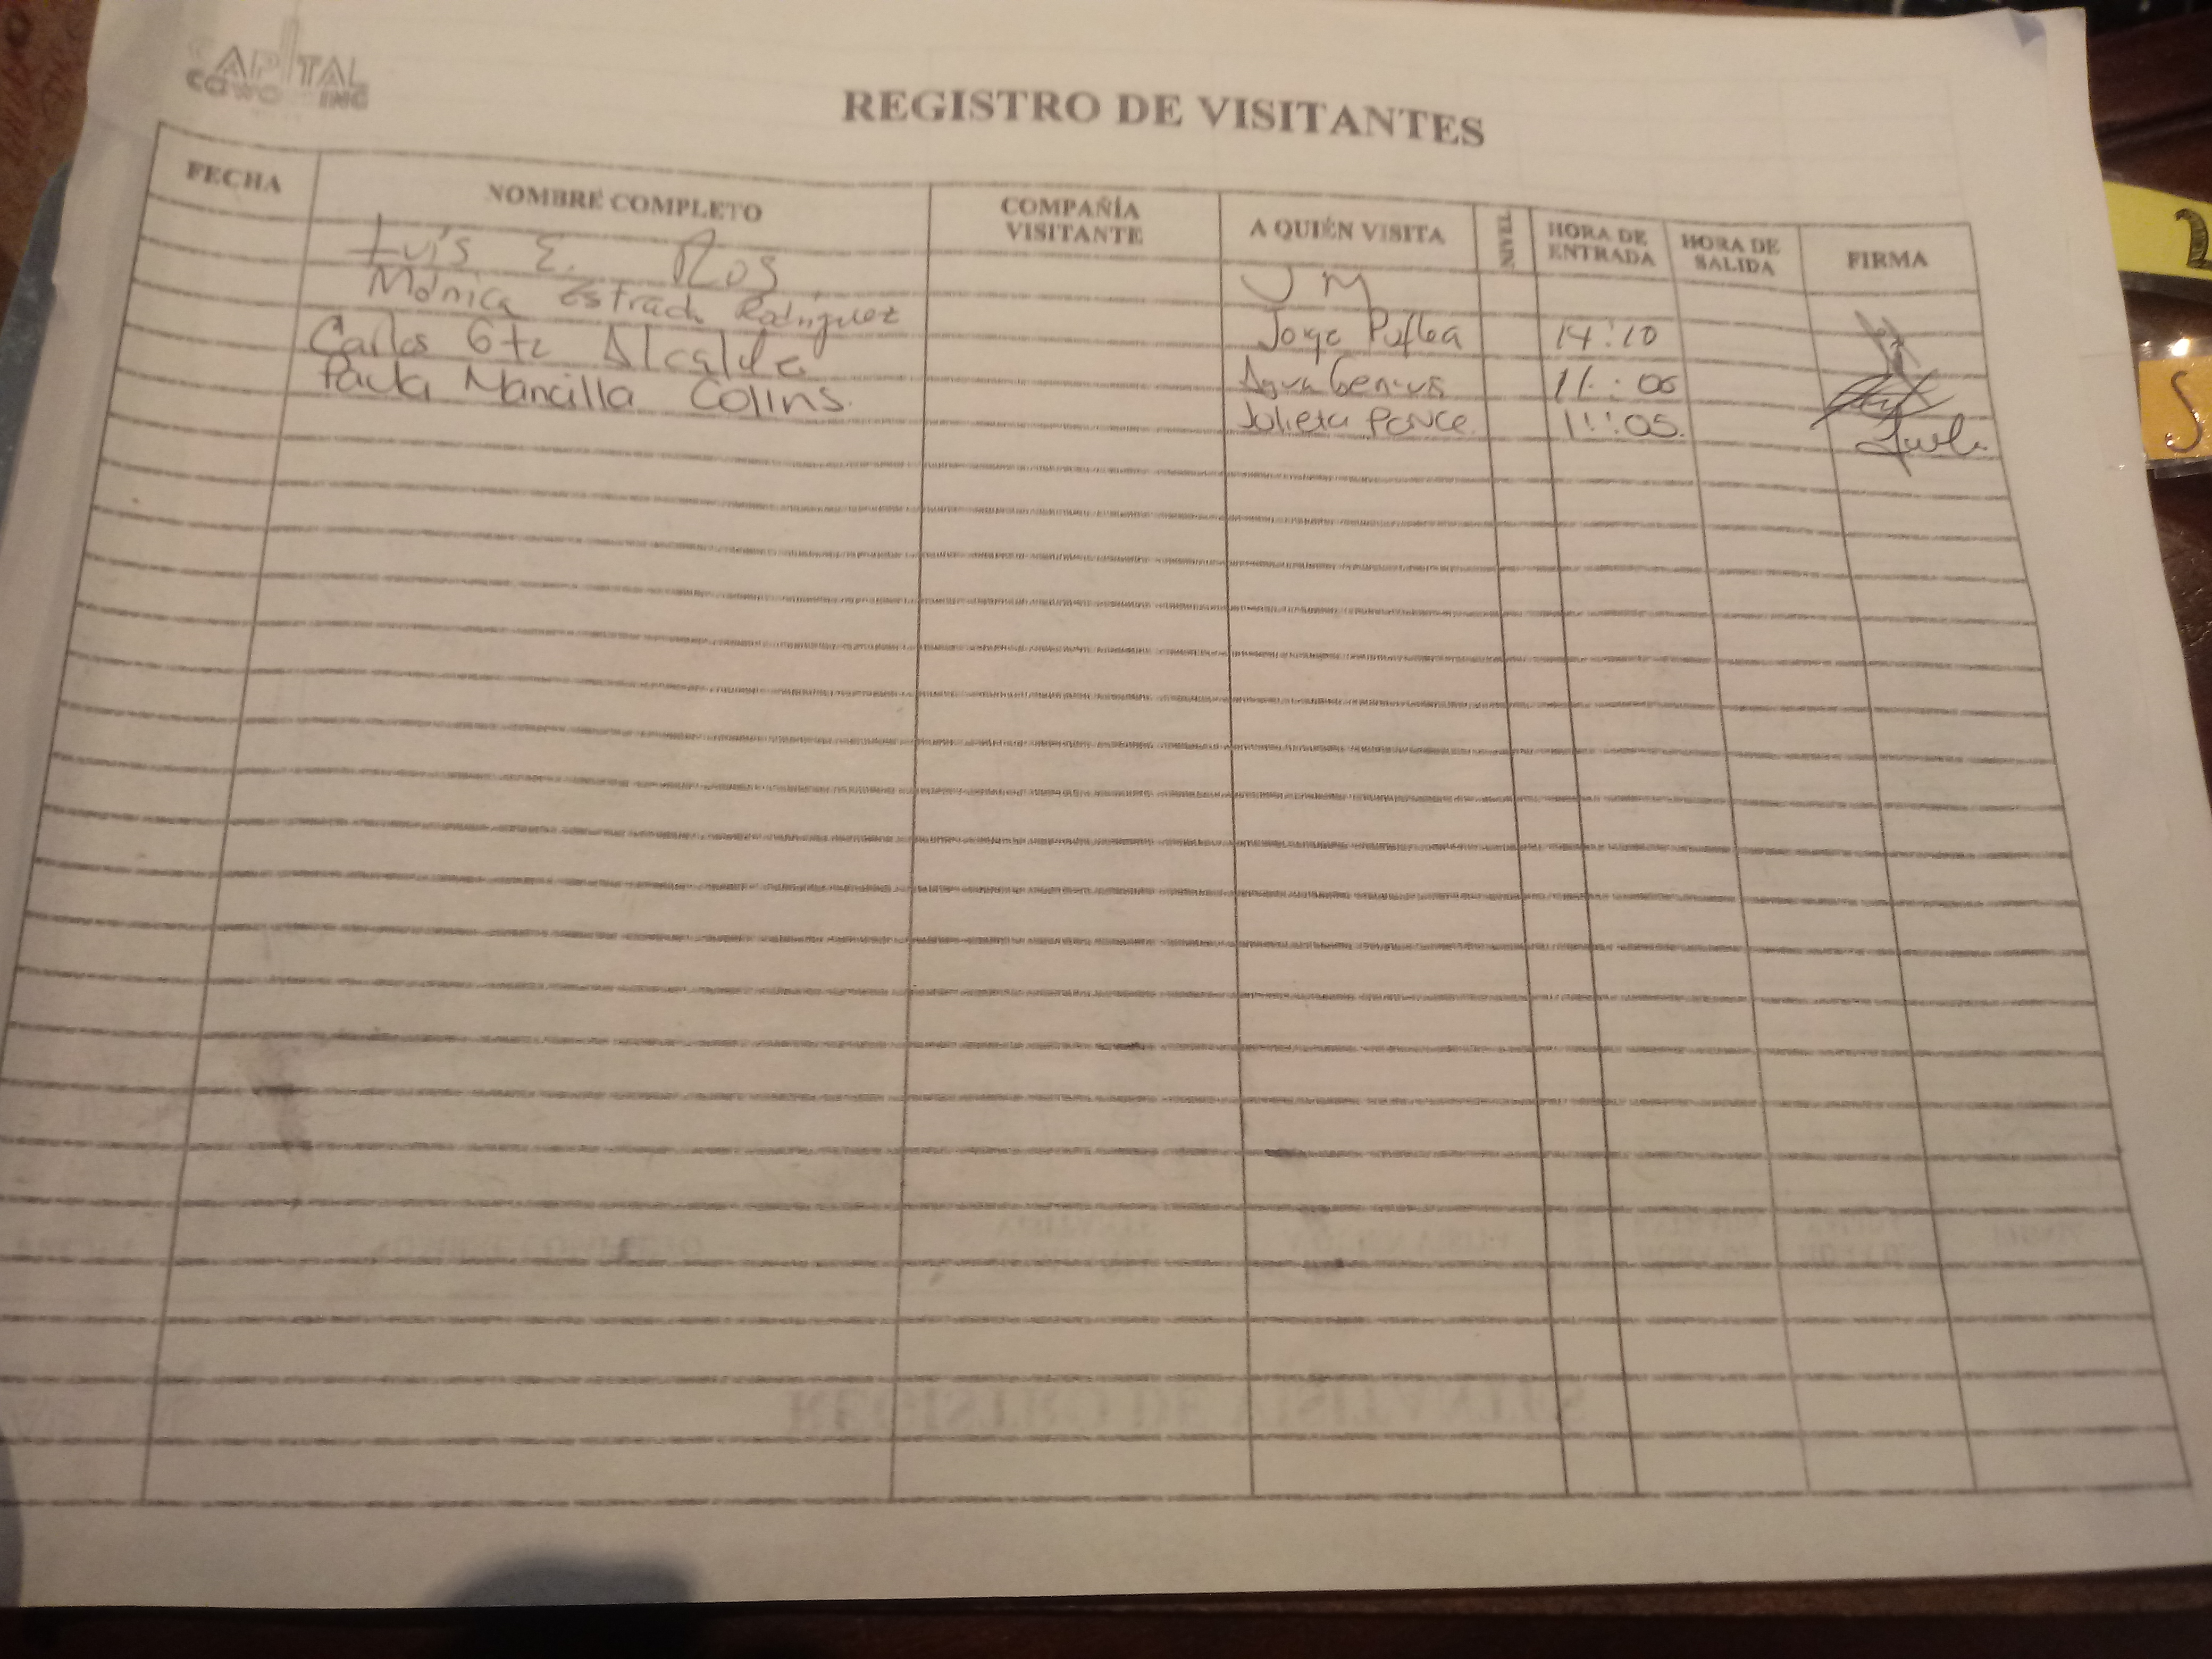 CAPITAL
COWORKING
REGISTRO DE VISITANTES
FECHA NOMBRE COMPLETO COMPAÑÍA VISITANTE A QUIÉN VISITA NIVEL HORA DE ENTRADA HORA DE SALIDA FIRMA
Luis E. Ros J M
Mónica Estrada Rodríguez Jorge 14:10
Carlos Gtz Alcalde 11:05
Paula Mancilla Colins. Julieta Ponce. 11:05.
5
2